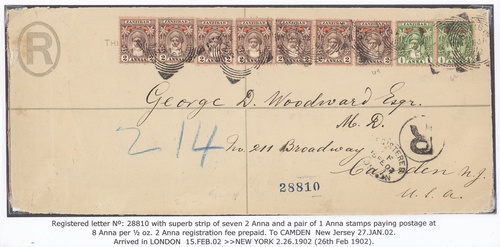 ZANZIBAR ZANZIBAR ZANZIBAR ZANZIBAR ZANZIBAR ZANZIBAR ZANZIBAR ZANZIBAR ZANZIBAR
2 ANNAS 2 2 ANNAS 2 2 ANNAS 2 2 ANNAS 2 2 ANNAS 2 2 ANNAS 2 2 ANNAS 2 1 ANNA 1 1 ANNA 1
R
George D. Woodward Esqr.
M. D.
214
No. 211 Broadway
R
REGISTERED
LONDON
Camden N.J.
28810
U.S.A.
Registered letter Nº: 28810 with superb strip of seven 2 Anna and a pair of 1 Anna stamps paying postage at
8 Anna per ½ oz. 2 Anna registration fee prepaid. To CAMDEN New Jersey 27.JAN.02.
Arrived in LONDON 15.FEB.02 >>NEW YORK 2.26.1902 (26th Feb 1902).